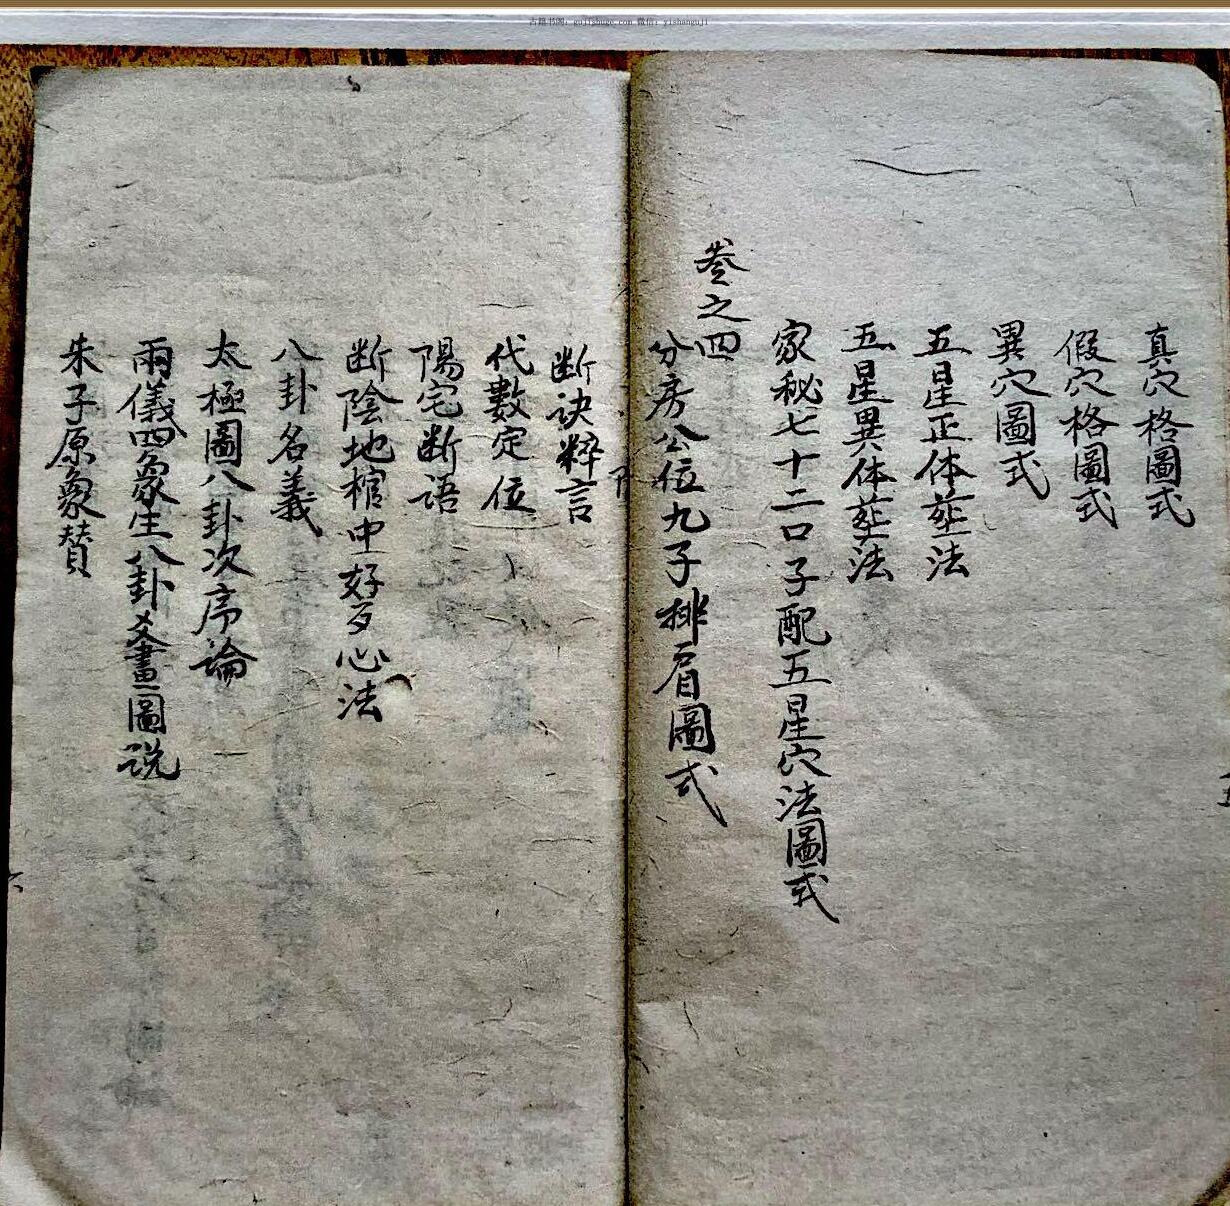 古籍书阁：gujishuge.com 微信：yishanguji
真穴格圖式
假穴格圖式
異穴圖式
五星正体塟法
五星異体塟法
家秘七十二口子配五星穴法圖式
卷之四
分房公位九子排眉圖式
断诀粹言
代數定位
陽宅断語
断陰地棺中好歹心法
八卦名義
太極圖八卦次序論
兩儀四象生八卦爻畫圖说
朱子原象賛